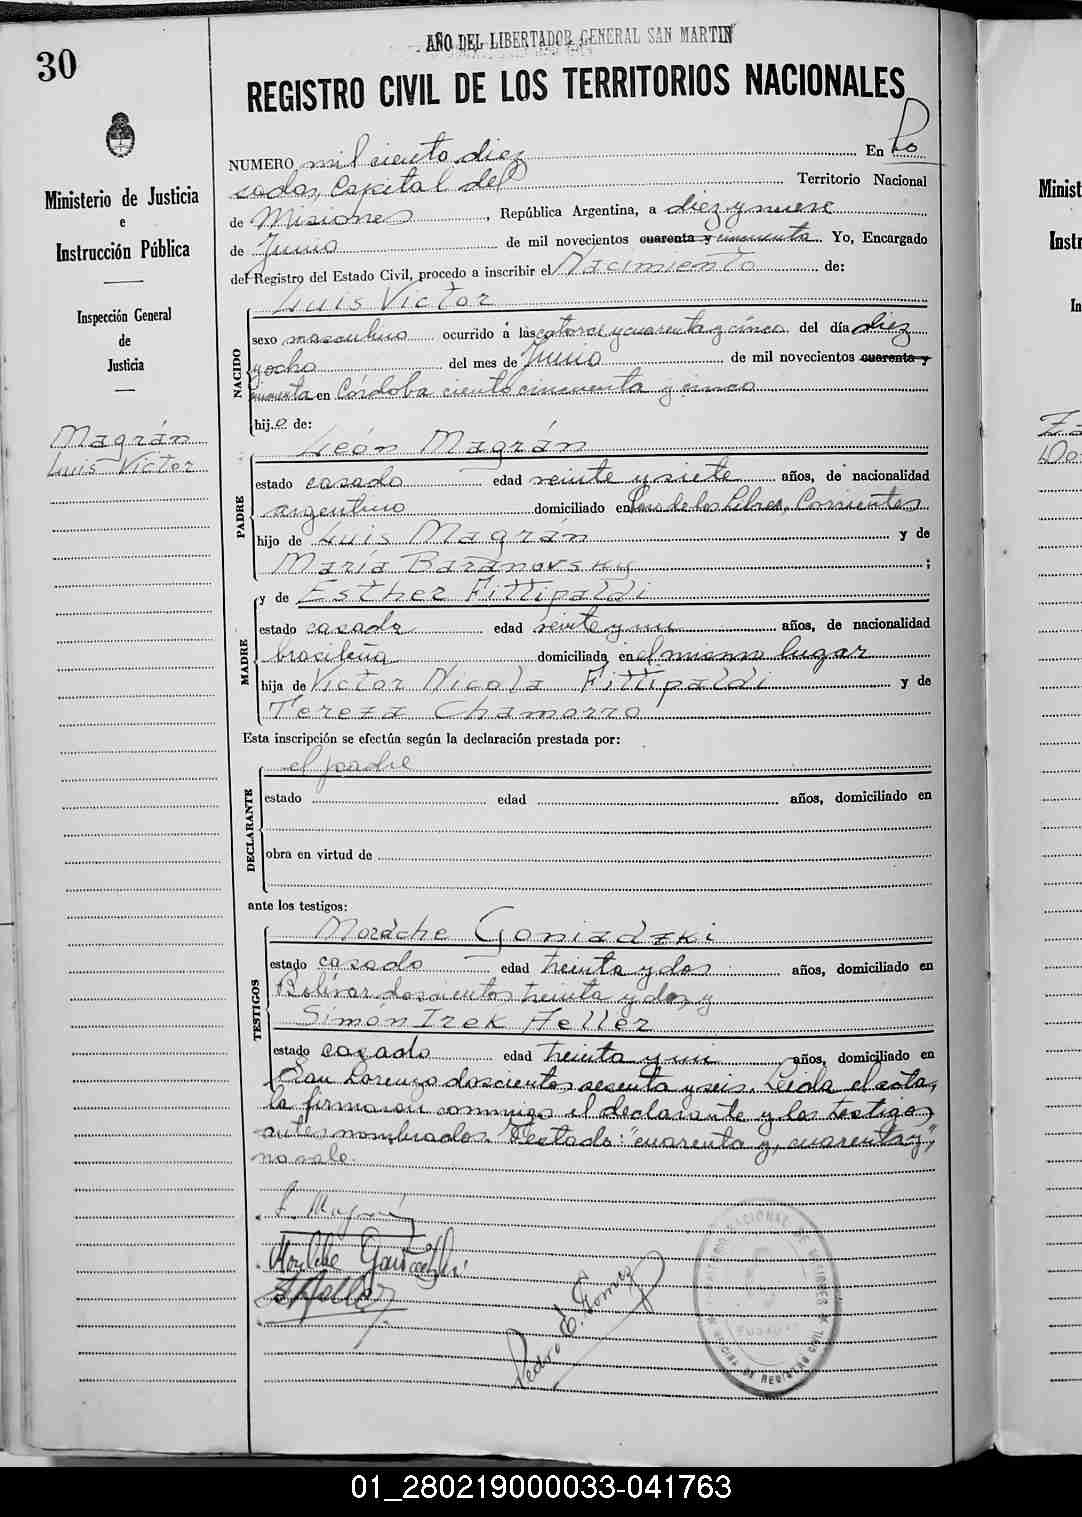 30
AÑO DEL LIBERTADOR GENERAL SAN MARTIN
REGISTRO CIVIL DE LOS TERRITORIOS NACIONALES
Ministerio de Justicia
e
Instrucción Pública
Inspección General
de
Justicia
Magrán
Luis Victor
NUMERO mil ciento diez En Po
sadas, Capital del Territorio Nacional
de Misiones, República Argentina, a diez y nueve
de Junio de mil novecientos cuarenta y cincuenta. Yo, Encargado
del Registro del Estado Civil, procedo a inscribir el Nacimiento de:
Luis Victor
NACIDO
sexo masculino ocurrido á las catorce y cuarenta y cinco del día diez
y ocho del mes de Junio de mil novecientos cuarenta y
cincuenta en Córdoba ciento cincuenta y cinco
hij.o de:
León Magrán
PADRE
estado casado edad veinte y siete años, de nacionalidad
argentino domiciliado en Paso de los Libres, Corrientes
hijo de Luis Magrán y de
María Baranovsky;
y de Esther Fittipaldi
MADRE
estado casada edad veinte y un años, de nacionalidad
brasileña domiciliada en el mismo lugar
hija de Victor Nicola Fittipaldi y de
Tereza Chamorro
Esta inscripción se efectúa según la declaración prestada por:
el padre
DECLARANTE
estado edad años, domiciliado en
obra en virtud de
ante los testigos:
Mordche Goniadzki
TESTIGOS
estado casado edad treinta y dos años, domiciliado en
Bolívar doscientos treinta y dos y
Simón Izek Heller
estado casado edad treinta y un años, domiciliado en
San Lorenzo doscientos sesenta y seis. Leida el acta,
la firmaron conmigo el declarante y los testigos
antes nombrados. Testado: "cuarenta y, cuarenta y",
no vale.
L. Magrán
Mordche Goniadzki
S. Heller
Pedro E. Gomez
OFICINA DE REGISTRO CIVIL
Minist
Instr
In
01_280219000033-041763